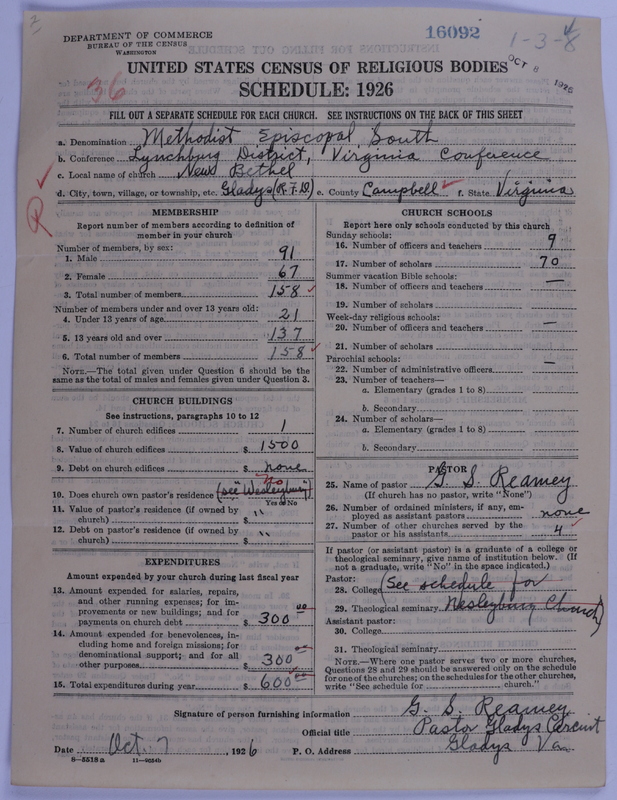 DEPARTMENT OF COMMERCE
BUREAU OF THE CENSUS
WASHINGTON
16092
1-3-8
OCT 8 1926
36
UNITED STATES CENSUS OF RELIGIOUS BODIES
SCHEDULE: 1926
FILL OUT A SEPARATE SCHEDULE FOR EACH CHURCH. SEE INSTRUCTIONS ON THE BACK OF THIS SHEET
a. Denomination Methodist Episcopal South
b. Conference Lynchburg District, Virginia Conference
c. Local name of church New Bethel
d. City, town, village, or township, etc. Gladys (R.F.D) e. County Campbell f. State Virginia
MEMBERSHIP
Report number of members according to definition of member in your church
Number of members, by sex:
1. Male 91
2. Female 67
3. Total number of members 158
Number of members under and over 13 years old:
4. Under 13 years of age 21
5. 13 years old and over 137
6. Total number of members 158
NOTE.—The total given under Question 6 should be
same as the total of males and females given under Question 3.
CHURCH BUILDINGS
See instructions, paragraphs 10 to 12
7. Number of church edifices 1
8. Value of church edifices $ 1500
9. Debt on church edifices $ none
No
10. Does church own pastor's residence (see Wesleybury)
Yes or No
11. Value of pastor's residence (if owned by
church) $ "
12. Debt on pastor's residence (if owned by
church) $ "
EXPENDITURES
Amount expended by your church during last fiscal year
13. Amount expended for salaries, repairs,
and other running expenses; for im-
provements or new buildings; and for
payments on church debt $ 300 00
14. Amount expended for benevolences, in-
cluding home and foreign missions; for
denominational support; and for all
other purposes $ 300
15. Total expenditures during year $ 600
CHURCH SCHOOLS
Report here only schools conducted by this church
Sunday schools:
16. Number of officers and teachers 9
17. Number of scholars 70
Summer vacation Bible schools:
18. Number of officers and teachers —
19. Number of scholars
Week-day religious schools:
20. Number of officers and teachers —
21. Number of scholars
Parochial schools:
22. Number of administrative officers —
23. Number of teachers—
a. Elementary (grades 1 to 8)
b. Secondary
24. Number of scholars—
a. Elementary (grades 1 to 8)
b. Secondary
PASTOR
25. Name of pastor G. S. Reamey
(If church has no pastor, write "None")
26. Number of ordained ministers, if any, em-
ployed as assistant pastors none
27. Number of other churches served by the
pastor or his assistants 4
If pastor (or assistant pastor) is a graduate of a college or
theological seminary, give name of institution below. (If
not a graduate, write "No" in the space indicated.)
Pastor:
28. College (See schedule for
29. Theological seminary Wesleybury Church)
Assistant pastor:
30. College
31. Theological seminary
NOTE.—Where one pastor serves two or more churches,
Questions 28 and 29 should be answered only on the schedule
for one of the churches; on the schedules for the other churches,
write "See schedule for church."
Signature of person furnishing information G. S. Reamey
Official title Pastor Gladys Circuit
Date Oct. 7, 1926 P. O. Address Gladys Va.
8—5518 a 11—9054b